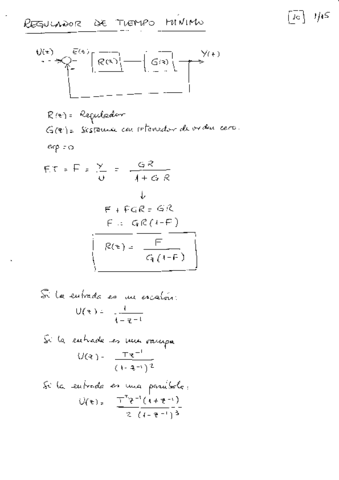 REGULADOR DE TIEMPO MINIMO
1/15
U(z) E(z) R(z) G(z) Y(z)
R(z) = Regulador
G(z) = Sistema con retenedor de orden cero.
erp = 0
F.T = F = Y/U = GR/(1 + GR)
↓
F + FGR = GR
F = GR(1-F)
R(z) = F/(G(1-F))
Si la entrada es un escalón:
U(z) = 1/(1-z-1)
Si la entrada es una rampa
U(z) = Tz-1/(1-z-1)2
Si la entrada es una parábola:
U(z) = T2z-1(1+z-1)/2(1-z-1)3